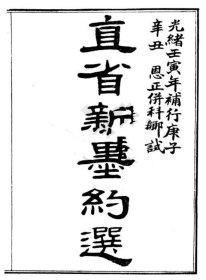 光緒壬寅年補行庚子
辛丑恩正併科鄉試
直省新墨約選